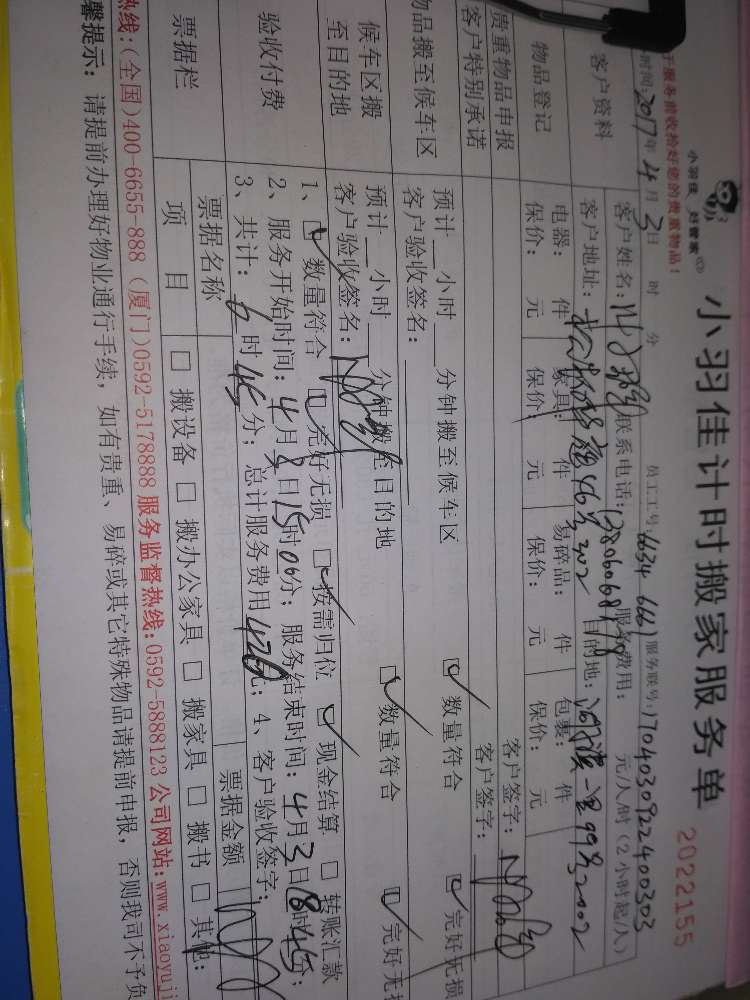 小羽佳 好管家
小羽佳计时搬家服务单
2022155
于服务前收拾好您的贵重物品！
员工工号: 6634 6661 服务联号: 1704030922400303
时间: 2017年4月3日 时 分 服务费用: 元/人/时（2小时起/人）
客户资料
客户姓名: 联系电话:
客户地址: 46号202 目的地: 99号2002
物品登记
电器: 件 家具: 件 易碎品: 件 包裹: 件
保价: 元 保价: 元 保价: 元 保价: 元
贵重物品申报
客户签字:
客户特别承诺
客户签字:
物品搬至候车区
预计 小时 分钟搬至候车区 数量符合 完好无损
客户验收签名:
候车区搬至目的地
预计 小时 分钟搬至目的地 数量符合 完好无损
客户验收签名:
验收付费
1、 数量符合 完好无损 按需归位 现金结算 转账汇款
2、服务开始时间: 4月3日15时06分; 服务结束时间: 4月3日18时45分;
3、共计: 6时45分; 总计服务费用420元; 4、客户验收签字:
票据栏
票据名称 票据金额
项目 搬设备 搬办公家具 搬家具 搬书 其他:
热线:(全国)400-6655-888 (厦门)0592-5178888 服务监督热线:0592-5888123 公司网站:www.xiaoyuji
馨提示: 请提前办理好物业通行手续，如有贵重、易碎或其它特殊物品请提前申报，否则我司不予负